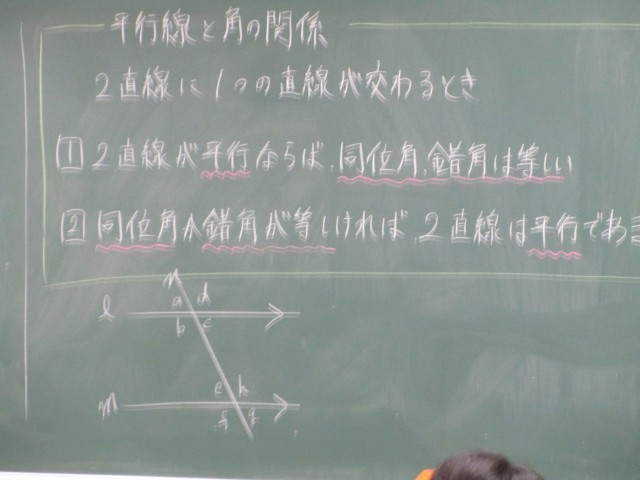 平行線と角の関係
2直線に1つの直線が交わるとき
1 2直線が平行ならば、同位角、錯角は等しい
2 同位角か錯角が等しければ、2直線は平行である
n
a d
l
b c
e h
m
f g